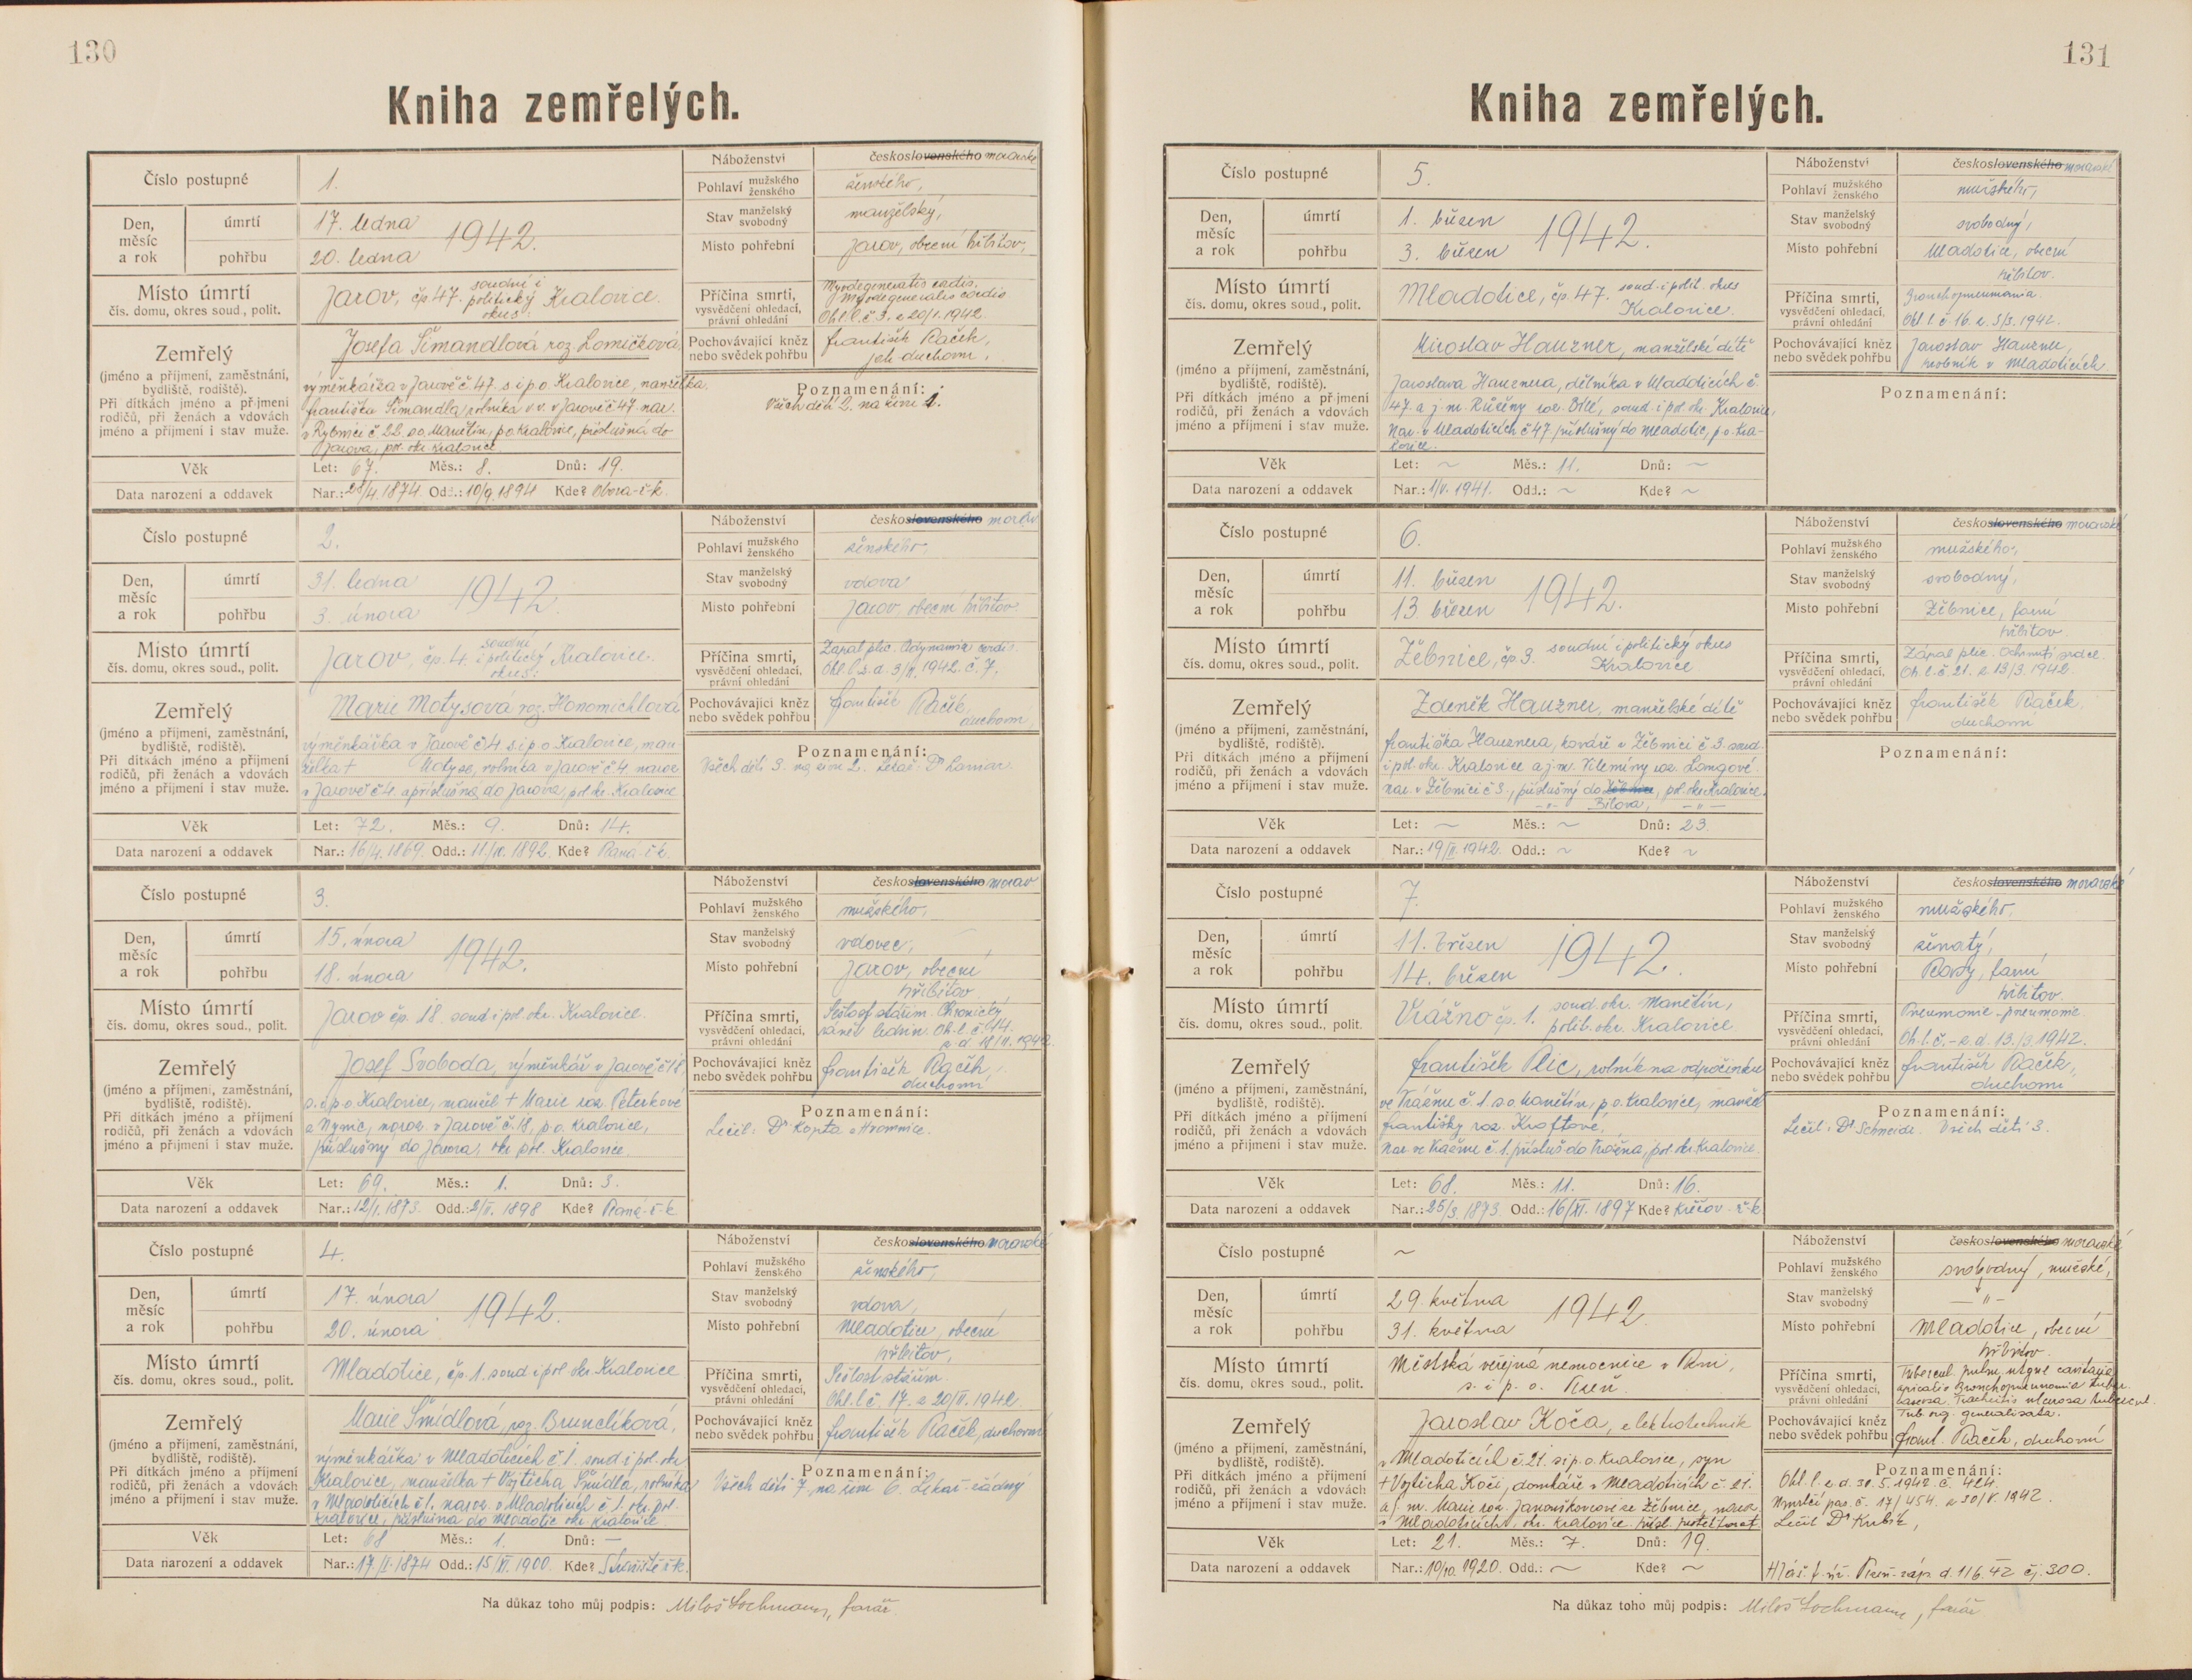 130
Kniha zemřelých.
Číslo postupné 1.
Náboženství československého moravské
Pohlaví mužského ženského ženského,
Den, měsíc a rok úmrtí 17. ledna 1942.
pohřbu 20. ledna
Stav manželský svobodný manželský,
Místo pohřební Jarov, obecní hřbitov,
Místo úmrtí
čís. domu, okres soud., polit.
Jarov, čp 47. soudní i politický okres: Kralovice.
Příčina smrti, vysvědčení ohledací, právní ohledání
Myodegeneratio cordis.
Ohl. l. č 3. z 20/1. 1942.
Zemřelý
(jméno a příjmení, zaměstnání, bydliště, rodiště).
Při dítkách jméno a příjmení rodičů, při ženách a vdovách jméno a příjmení i stav muže.
Josefa Šimandlová roz. Lomičková,
výměnkářka v Jarově č 47. s. i p. o. Kralovice, manželka
Františka Šimandla, rolníka v. v. v Jarově č 47. nar.
v Rybnici č 22. so. Manětín, p o Kralovice, příslušná do
Jarova, pol. okr. Kralovice.
Pochovávající kněz nebo svědek pohřbu
František Raček,
duchovní.
Poznamenání:
Všech dětí 2. na živu 2.
Věk Let: 67. Měs.: 8. Dnů: 19.
Data narození a oddavek Nar.: 28/4. 1874. Odd.: 10/9. 1894 Kde? Obora-č-k.
Číslo postupné 2.
Náboženství československého morav.
Pohlaví mužského ženského ženského,
Den, měsíc a rok úmrtí 31. ledna 1942.
pohřbu 3. února
Stav manželský svobodný vdova
Místo pohřební Jarov, obecní hřbitov.
Místo úmrtí
čís. domu, okres soud., polit.
Jarov, čp. 4. soudní i politický okres: Kralovice.
Příčina smrti, vysvědčení ohledací, právní ohledání
Zápal plic. Adynamia cordis.
Ohl. l. z. d. 3/II. 1942. č. 7.
Zemřelý
(jméno a příjmení, zaměstnání, bydliště, rodiště).
Při dítkách jméno a příjmení rodičů, při ženách a vdovách jméno a příjmení i stav muže.
Marie Motysová roz. Honomichlová
výměnkářka v Jarově č 4 s i p o Kralovice, man-
želka + Motyse, rolníka v Jarově č 4. naroz.
v Jarově č 4. a příslušná do Jarova, pol. okr. Kralovice
Pochovávající kněz nebo svědek pohřbu
František Raček,
duchovní.
Poznamenání:
Všech dětí 3. na živu 2. Lékař: Dr
Věk Let: 72. Měs.: 9. Dnů: 14.
Data narození a oddavek Nar.: 16/4. 1869. Odd.: 1892. Kde? Planá-č-k.
Číslo postupné 3.
Náboženství československého morav
Pohlaví mužského ženského mužského,
Den, měsíc a rok úmrtí 15. února 1942.
pohřbu 18. února
Stav manželský svobodný vdovec,
Místo pohřební Jarov, obecní
hřbitov.
Místo úmrtí
čís. domu, okres soud., polit.
Jarov čp. 18. soud i pol. okr. Kralovice.
Příčina smrti, vysvědčení ohledací, právní ohledání
Sešlost stářím. Chronický
zánět ledvin. Oh. l. č 14.
z. d 18/II. 1942.
Zemřelý
(jméno a příjmení, zaměstnání, bydliště, rodiště).
Při dítkách jméno a příjmení rodičů, při ženách a vdovách jméno a příjmení i stav muže.
Josef Svoboda, výměnkář v Jarově č 18
s. i p o Kralovice, manžel + Marie roz. Peterkové
naroz. v Jarově č. 18, p o. Kralovice,
příslušný do Jarova, okr pol. Kralovice.
Pochovávající kněz nebo svědek pohřbu
František Raček,
duchovní.
Poznamenání:
Léčil: Dr Kopta z Hromnice.
Věk Let: 69. Měs.: 1. Dnů: 3.
Data narození a oddavek Nar.: 12/1. 1873. Odd.: 2/II. 1898 Kde? Planá-č-k
Číslo postupné 4.
Náboženství československého moravské
Pohlaví mužského ženského ženského,
Den, měsíc a rok úmrtí 17. února 1942.
pohřbu 20. února
Stav manželský svobodný vdova,
Místo pohřební Mladotice, obecní
hřbitov,
Místo úmrtí
čís. domu, okres soud., polit.
Mladotice, čp. 1. soud i pol okr. Kralovice
Příčina smrti, vysvědčení ohledací, právní ohledání
Sešlost stářím.
Ohl. l č. 17. z 20/II. 1942
Zemřelý
(jméno a příjmení, zaměstnání, bydliště, rodiště).
Při dítkách jméno a příjmení rodičů, při ženách a vdovách jméno a příjmení i stav muže.
Marie Šmídlová, roz. Brunclíková,
výměnkářka v Mladoticích č 1. soud i pol. okr
Kralovice, manželka + Vojtěcha Šmídla, rolníka
v Mladoticích č 1. naroz. v Mladoticích č 1. okr. pol.
Kralovice, příslušná do Mladotic okr Kralovice.
Pochovávající kněz nebo svědek pohřbu
František Raček, duchovní
Poznamenání:
Všech dětí 7, na živu 6. Lékař-žádný
Věk Let: 68 Měs.: 1. Dnů: —
Data narození a oddavek Nar.: 17/I. 1874 Odd.: 15/XI. 1900. Kde?
Na důkaz toho můj podpis: Miloš Lochmann, farář.
131
Kniha zemřelých.
Číslo postupné 5.
Náboženství československého moravské
Pohlaví mužského ženského mužského,
Den, měsíc a rok úmrtí 1. březen 1942.
pohřbu 3. březen
Stav manželský svobodný svobodný,
Místo pohřební Mladotice, obecní
hřbitov.
Místo úmrtí
čís. domu, okres soud., polit.
Mladotice, čp. 47. soud. i polit. okres
Kralovice.
Příčina smrti, vysvědčení ohledací, právní ohledání
Bronchopneumonia.
Ohl. l. č 16. z. 3/3. 1942.
Zemřelý
(jméno a příjmení, zaměstnání, bydliště, rodiště).
Při dítkách jméno a příjmení rodičů, při ženách a vdovách jméno a příjmení i stav muže.
Miroslav Hauzner, manželské dítě
Jaroslava Hauznera, dělníka v Mladoticích č.
47. a j. m. Růženy roz. Bílé, soud. i pol. okr. Kralovice,
Nar. v Mladoticích č 47. příslušný do Mladotic, p. o. Kra-
lovice.
Pochovávající kněz nebo svědek pohřbu
Jaroslav Hauzner,
hrobník v Mladoticích.
Poznamenání:
Věk Let: ~ Měs.: 11. Dnů: ~
Data narození a oddavek Nar.: 1/V. 1941. Odd.: ~ Kde? ~
Číslo postupné 6.
Náboženství československého moravské
Pohlaví mužského ženského mužského,
Den, měsíc a rok úmrtí 11. březen 1942.
pohřbu 13 březen
Stav manželský svobodný svobodný,
Místo pohřební Žebnice, farní
hřbitov.
Místo úmrtí
čís. domu, okres soud., polit.
Žebnice, čp. 3. soudní i politický okres
Kralovice
Příčina smrti, vysvědčení ohledací, právní ohledání
Zápal plic. Ochrnutí srdce.
Oh. l. č. 21. z 13/3. 1942.
Zemřelý
(jméno a příjmení, zaměstnání, bydliště, rodiště).
Při dítkách jméno a příjmení rodičů, při ženách a vdovách jméno a příjmení i stav muže.
Zdeněk Hauzner, manželské dítě
Františka Hauznera, kováře v Žebnici č 3. soud.
i pol. okr. Kralovice a j. m. Vilemíny roz. Langové.
Nar. v Žebnici č 3., příslušný do Žebnice, pol. okr Kralovice.
-"- Bílova, -"-
Pochovávající kněz nebo svědek pohřbu
František Raček,
duchovní
Poznamenání:
Věk Let: ~ Měs.: ~ Dnů: 23.
Data narození a oddavek Nar.: 19/II. 1942. Odd.: ~ Kde? ~
Číslo postupné 7.
Náboženství československého moravské
Pohlaví mužského ženského mužského,
Den, měsíc a rok úmrtí 11. březen 1942.
pohřbu 14. březen
Stav manželský svobodný ženatý,
Místo pohřební farní
hřbitov.
Místo úmrtí
čís. domu, okres soud., polit.
Vrážno čp. 1. soud. okr. Manětín,
polit. okr. Kralovice
Příčina smrti, vysvědčení ohledací, právní ohledání
Pneumonie - pneumonie.
Oh. l. č. - z. d. 13./3. 1942.
Zemřelý
(jméno a příjmení, zaměstnání, bydliště, rodiště).
Při dítkách jméno a příjmení rodičů, při ženách a vdovách jméno a příjmení i stav muže.
František Plic, rolník na odpočinku
ve Vrážnu č. 1. s. o Manětín, p o. Kralovice, manžel
Františky roz. Kraftové.
Nar. ve Vrážnu č. 1. přísluš. do Vrážna, pol. okr. Kralovice.
Pochovávající kněz nebo svědek pohřbu
František Raček,
duchovní
Poznamenání:
Léčil: Dr Schneide. Všech dětí 3.
Věk Let: 68. Měs.: 11. Dnů: 16.
Data narození a oddavek Nar.: 25/3. 1873. Odd.: 16/XI. 1897 Kde? Křečov - č-k
Číslo postupné ~
Náboženství československého moravské
Pohlaví mužského ženského svobodný, mužské,
Den, měsíc a rok úmrtí 29. května 1942.
pohřbu 31. května
Stav manželský svobodný — " —
Místo pohřební Mladotice, obecní
hřbitov.
Místo úmrtí
čís. domu, okres soud., polit.
Městská veřejná nemocnice v Plzni,
s. i p. o. Plzeň.
Příčina smrti, vysvědčení ohledací, právní ohledání
Tubercul. pulm. utque
apicalis Bronchopneumonia tuber.
caseosa, Tracheitis ulcerosa tubercul.
Tub. org. generalisata.
Zemřelý
(jméno a příjmení, zaměstnání, bydliště, rodiště).
Při dítkách jméno a příjmení rodičů, při ženách a vdovách jméno a příjmení i stav muže.
Jaroslav Koča, elektrotechnik
v Mladoticích č. 21. s i p. o. Kralovice, syn
+ Vojtěcha Koči, domkáře v Mladoticích č. 21.
a j. m. Marie roz. ze Žebnice, naroz.
v Mladoticích, okr. Kralovice. přísl. protektorat
Pochovávající kněz nebo svědek pohřbu
Frant. Raček, duchovní
Poznamenání:
Ohl. l. z. d. 30. 5. 1942. č. 424.
Umrlčí pas. č. 17/454. z 30/V. 1942.
Léčil Dr Kubík,
Věk Let: 21. Měs.: 7. Dnů: 19.
Data narození a oddavek Nar.: 10/10. 1920. Odd.: ~ Kde? ~
Hláš. f. úř. Plzeň - záp. d. 11 6. 42 čj. 300.
Na důkaz toho můj podpis: Miloš Lochmann, farář